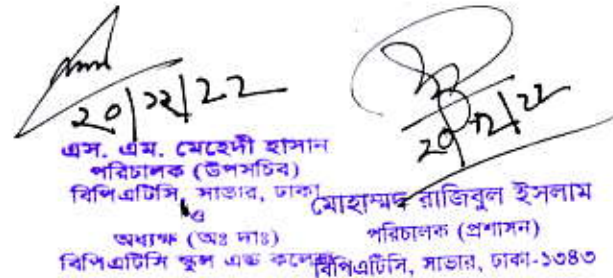 20/12/22
এস. এম. মেহেদী হাসান
পরিচালক (উপসচিব)
বিপিএটিসি, সাভার, ঢাকা
ও
অধ্যক্ষ (অঃ দাঃ)
বিপিএটিসি স্কুল এন্ড কলেজ
20/12/22
মোহাম্মদ রাজিবুল ইসলাম
পরিচালক (প্রশাসন)
বিপিএটিসি, সাভার, ঢাকা-১৩৪৩